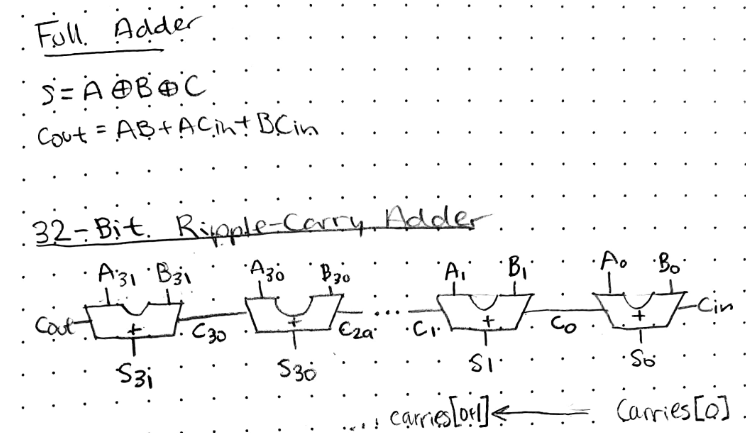 Full Adder
S = A ⊕ B ⊕ C
Cout = AB + ACin + BCin
32-Bit Ripple-Carry Adder
A31 B31 A30 B30 A1 B1 A0 B0
Cout + C30 + C29 ... C1 + C0 + Cin
S31 S30 S1 S0
... carries[0+1] ← Carries[0]